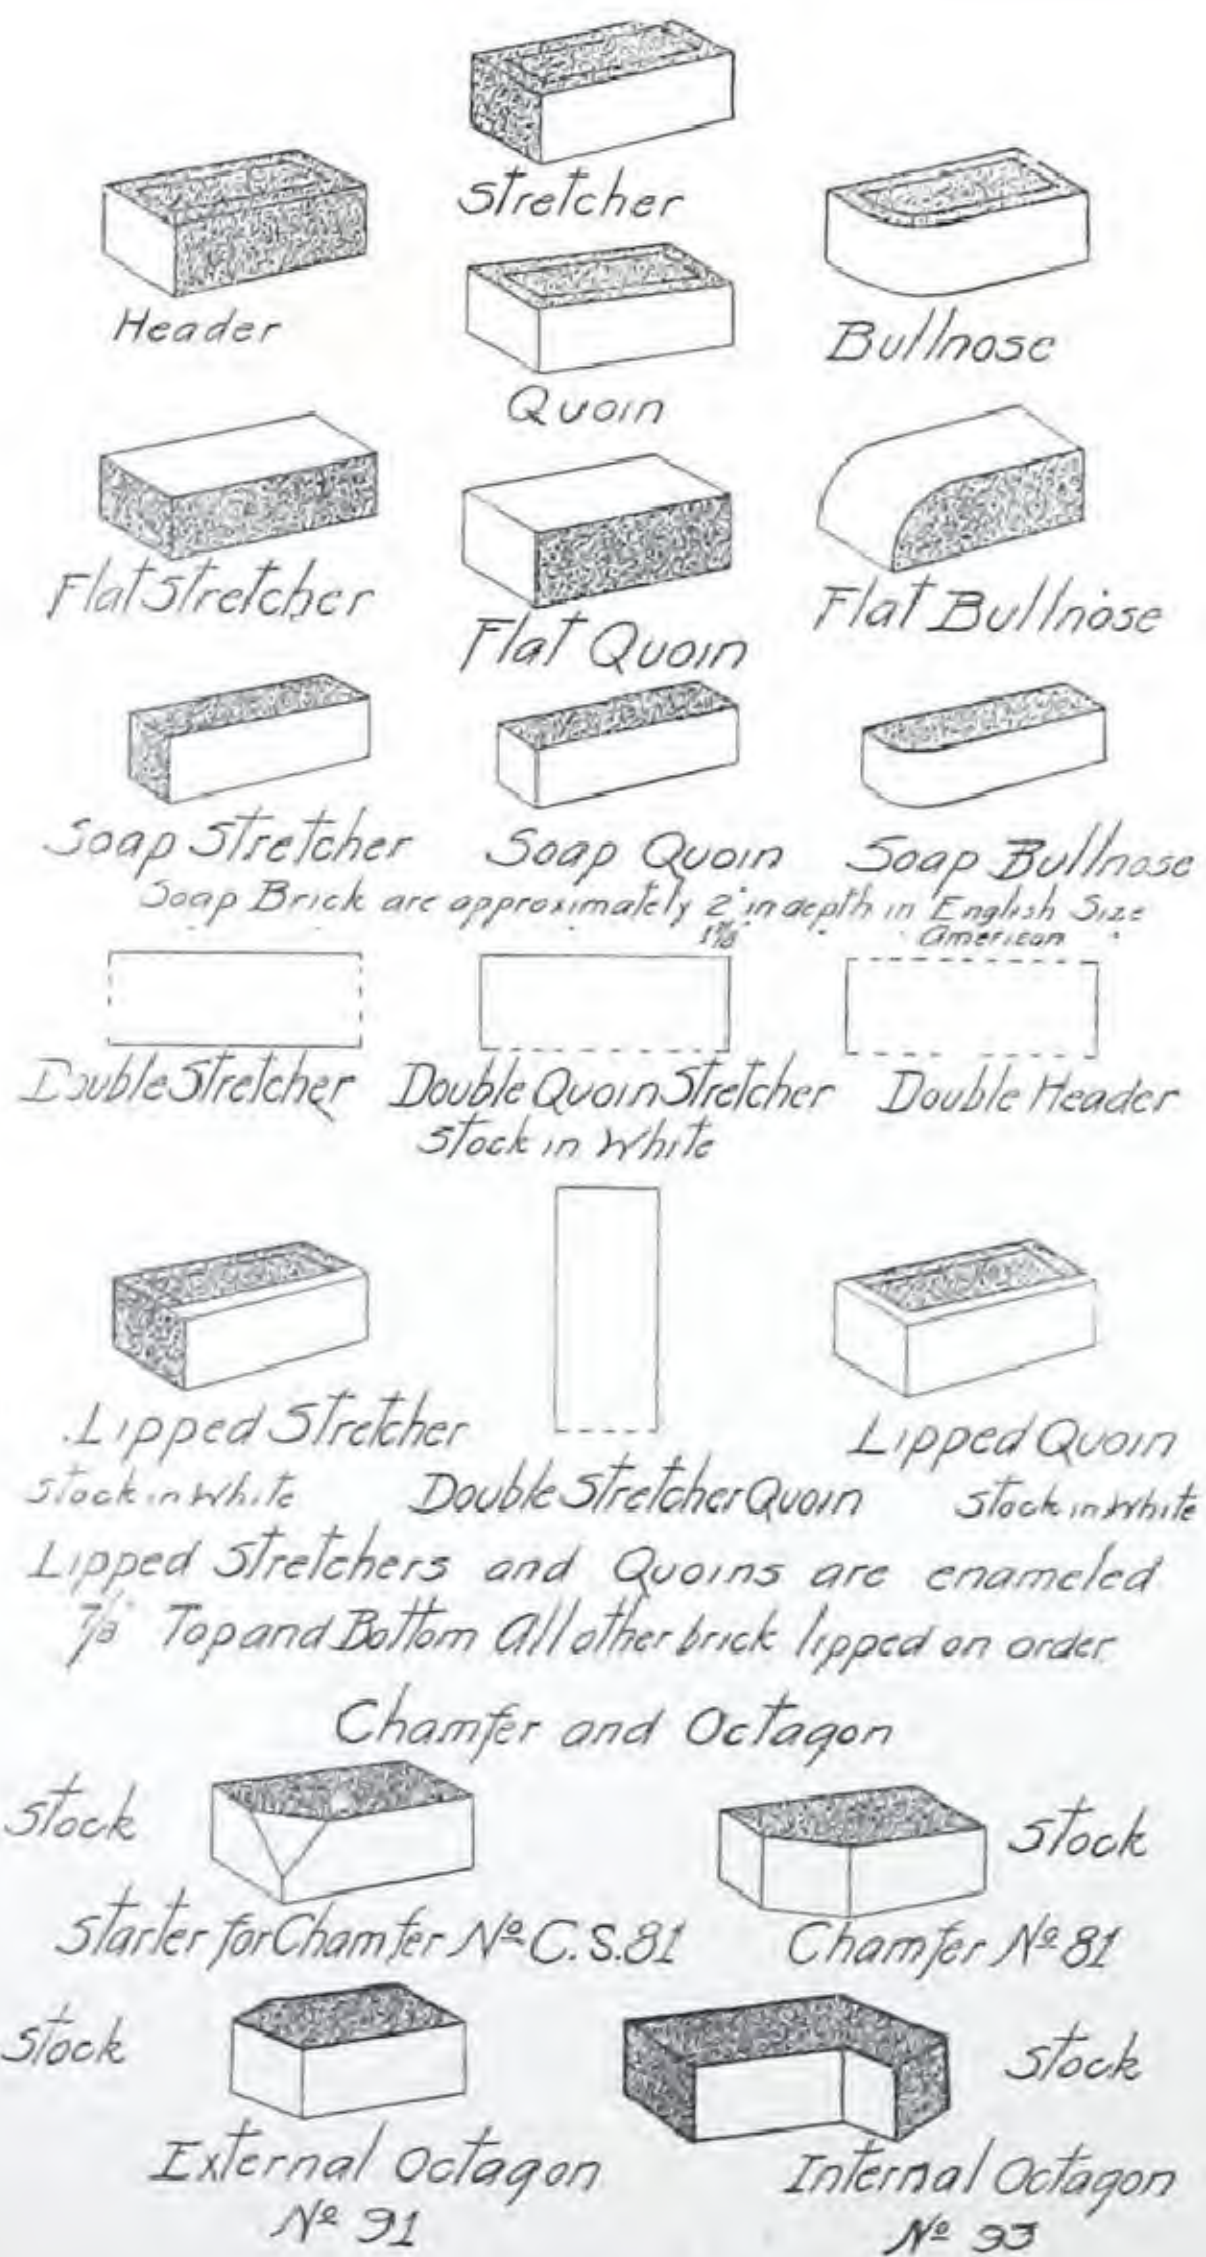 Stretcher
Header
Quoin
Bullnose
Flat Stretcher
Flat Quoin
Flat Bullnose
Soap Stretcher
Soap Quoin
Soap Bullnose
Soap Brick are approximately 2" in depth in English Size
American
Double Stretcher
Double Quoin Stretcher
Stock in White
Double Header
Lipped Stretcher
Stock in White
Double Stretcher Quoin
Lipped Quoin
Stock in White
Lipped Stretchers and Quoins are enameled
7/8" Top and Bottom All other brick lipped on order
Chamfer and Octagon
Stock
Stock
Starter for Chamfer Nº C.S.81
Chamfer Nº 81
Stock
Stock
External Octagon
Nº 91
Internal Octagon
Nº 93